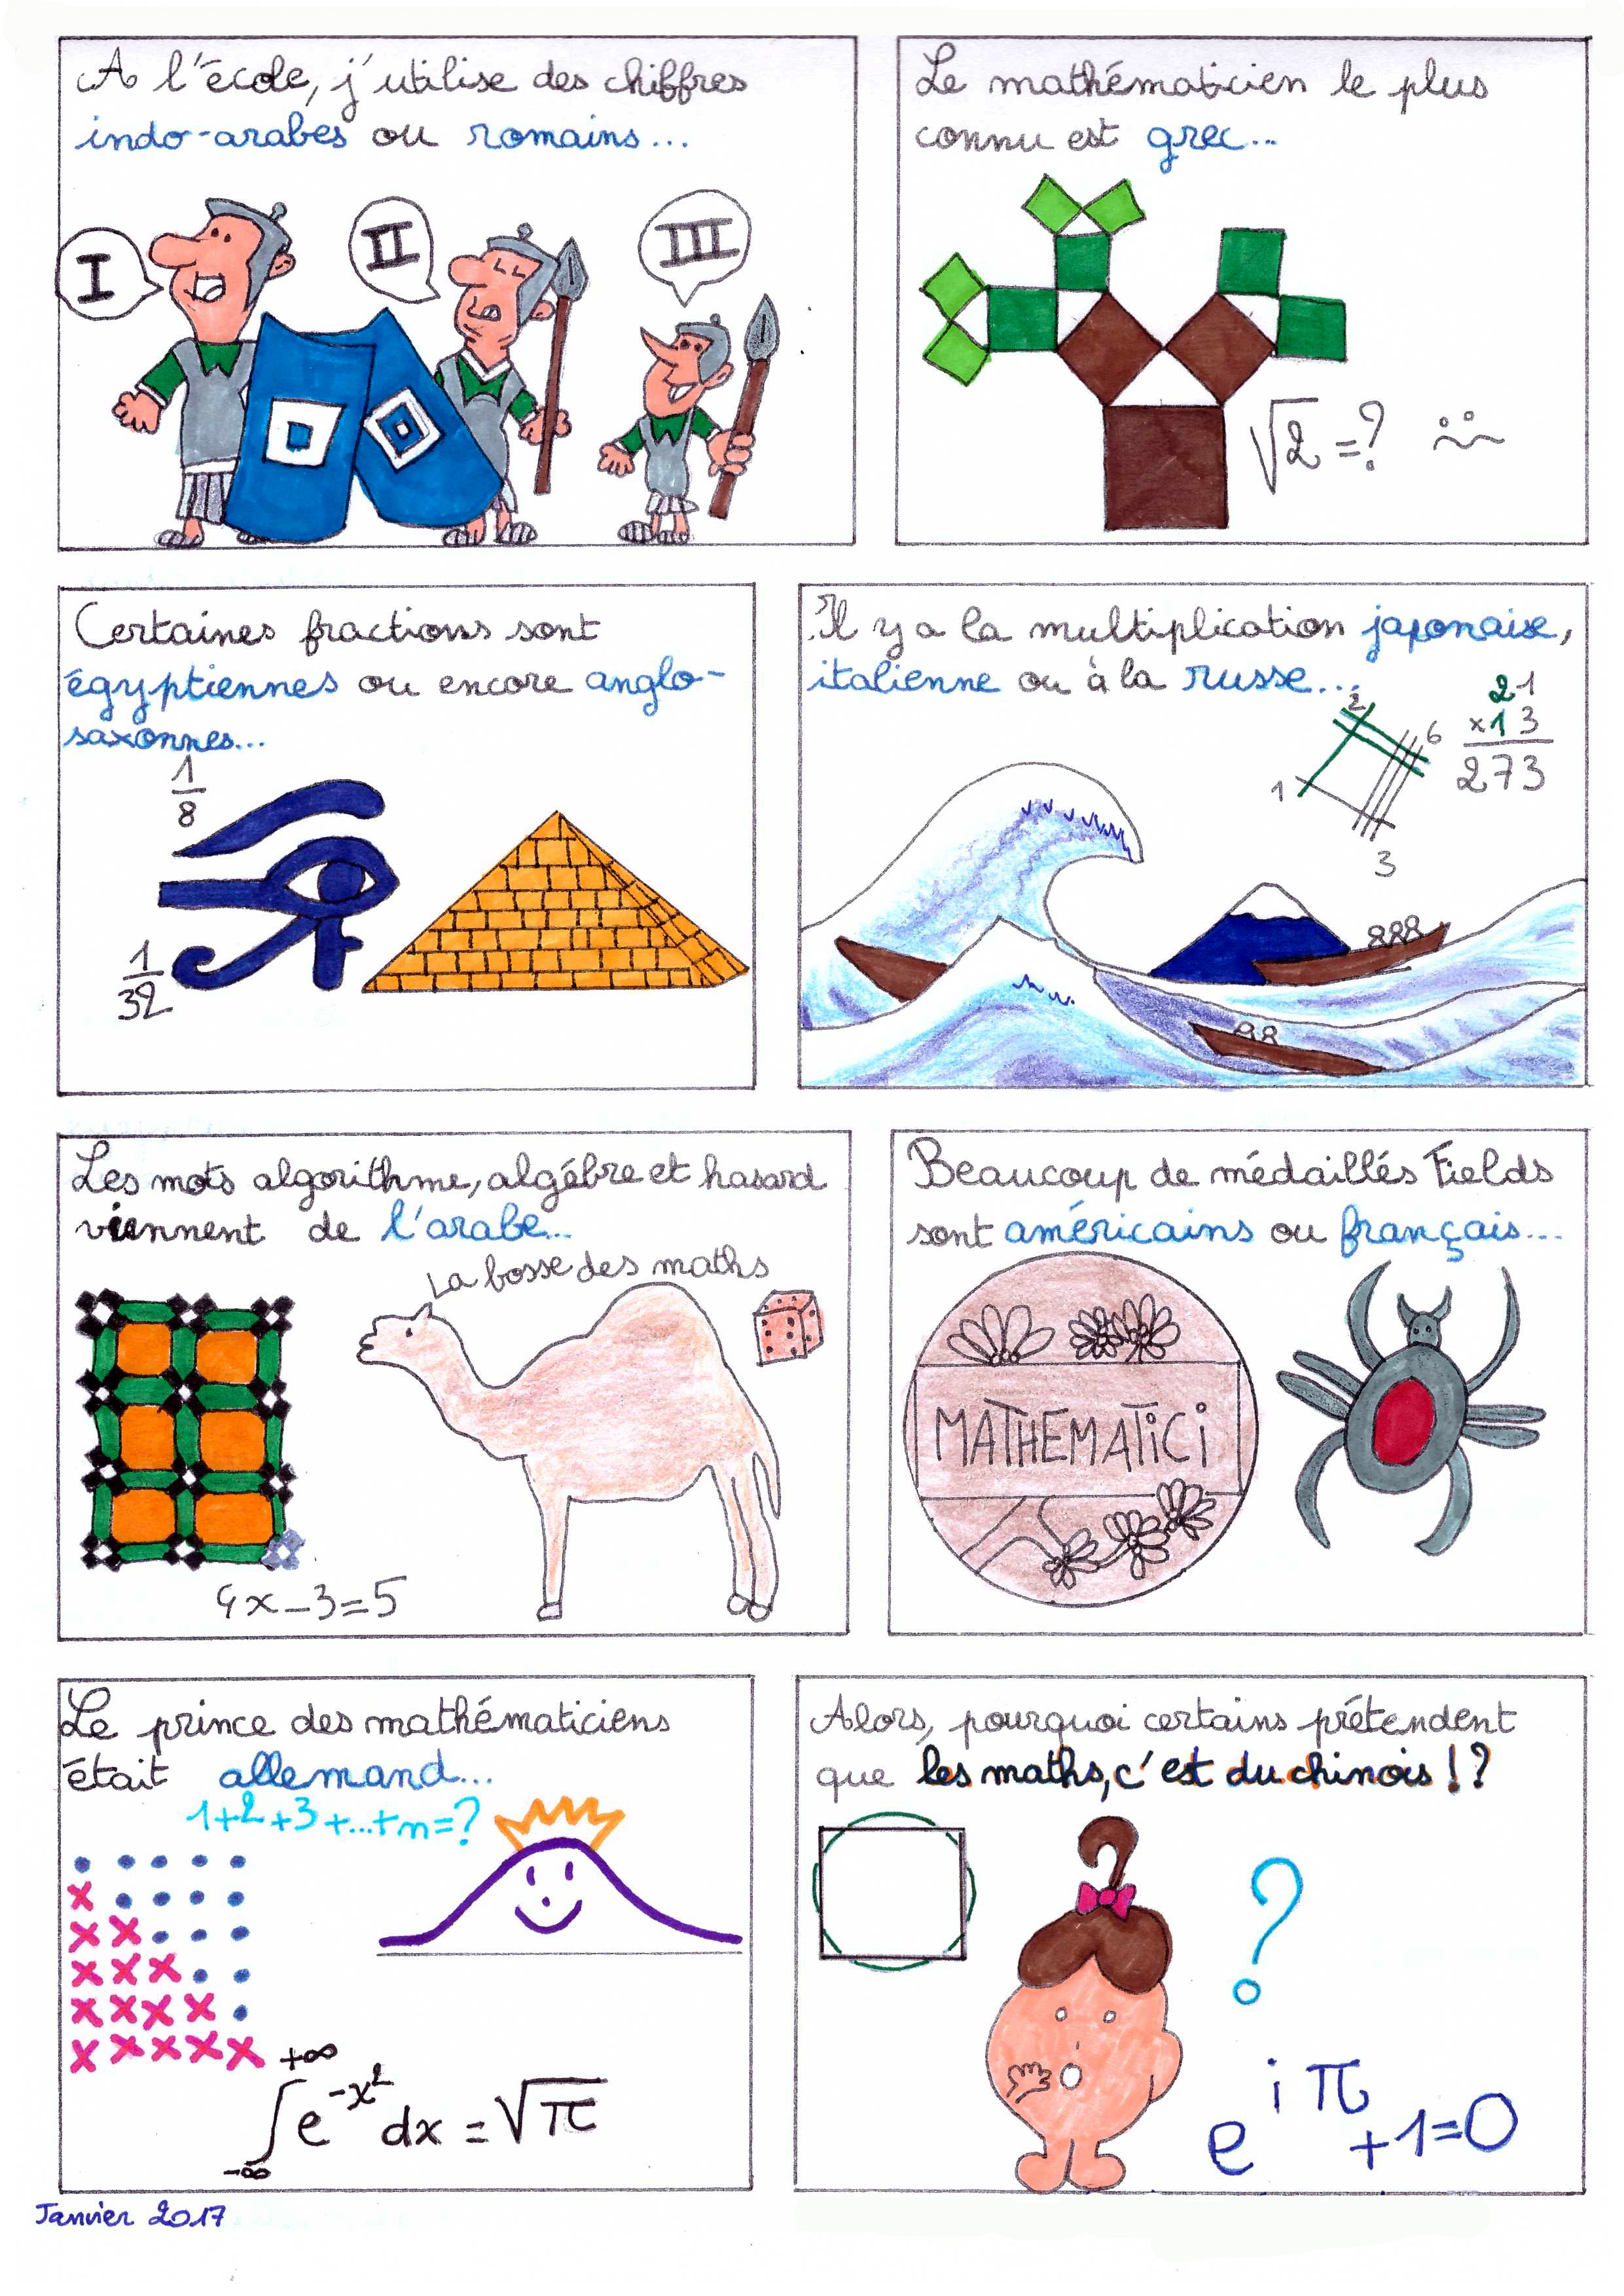 A l'école, j'utilise des chiffres
indo-arabes ou romains...
I
II
III
Le mathématicien le plus
connu est grec...
√2 = ?
Certaines fractions sont
égyptiennes ou encore anglo-
saxonnes...
1/8
1/32
Il y a la multiplication japonaise,
italienne ou à la russe...
2
6
1
3
21
x13
273
Les mots algorithme, algébre et hasard
viennent de l'arabe...
La bosse des maths
4x-3=5
Beaucoup de médaillés Fields
sont américains ou français...
MATHEMATiCi
Le prince des mathématiciens
était allemand...
1+2+3+...+n=?
∫ e^-x² dx = √π
+∞
-∞
Alors, pourquoi certains prétendent
que les maths, c'est du chinois !?
?
e^iπ +1=0
Janvier 2017